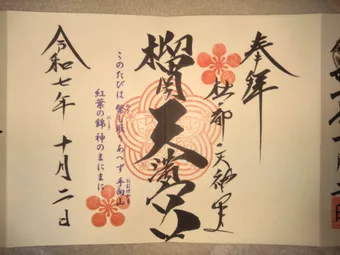 奉拝
杜の都 天神さま
榴岡天満宮
このたびは 幣も取りあへず 手向山
紅葉の錦 神のまにまに
令和七年 十月二日